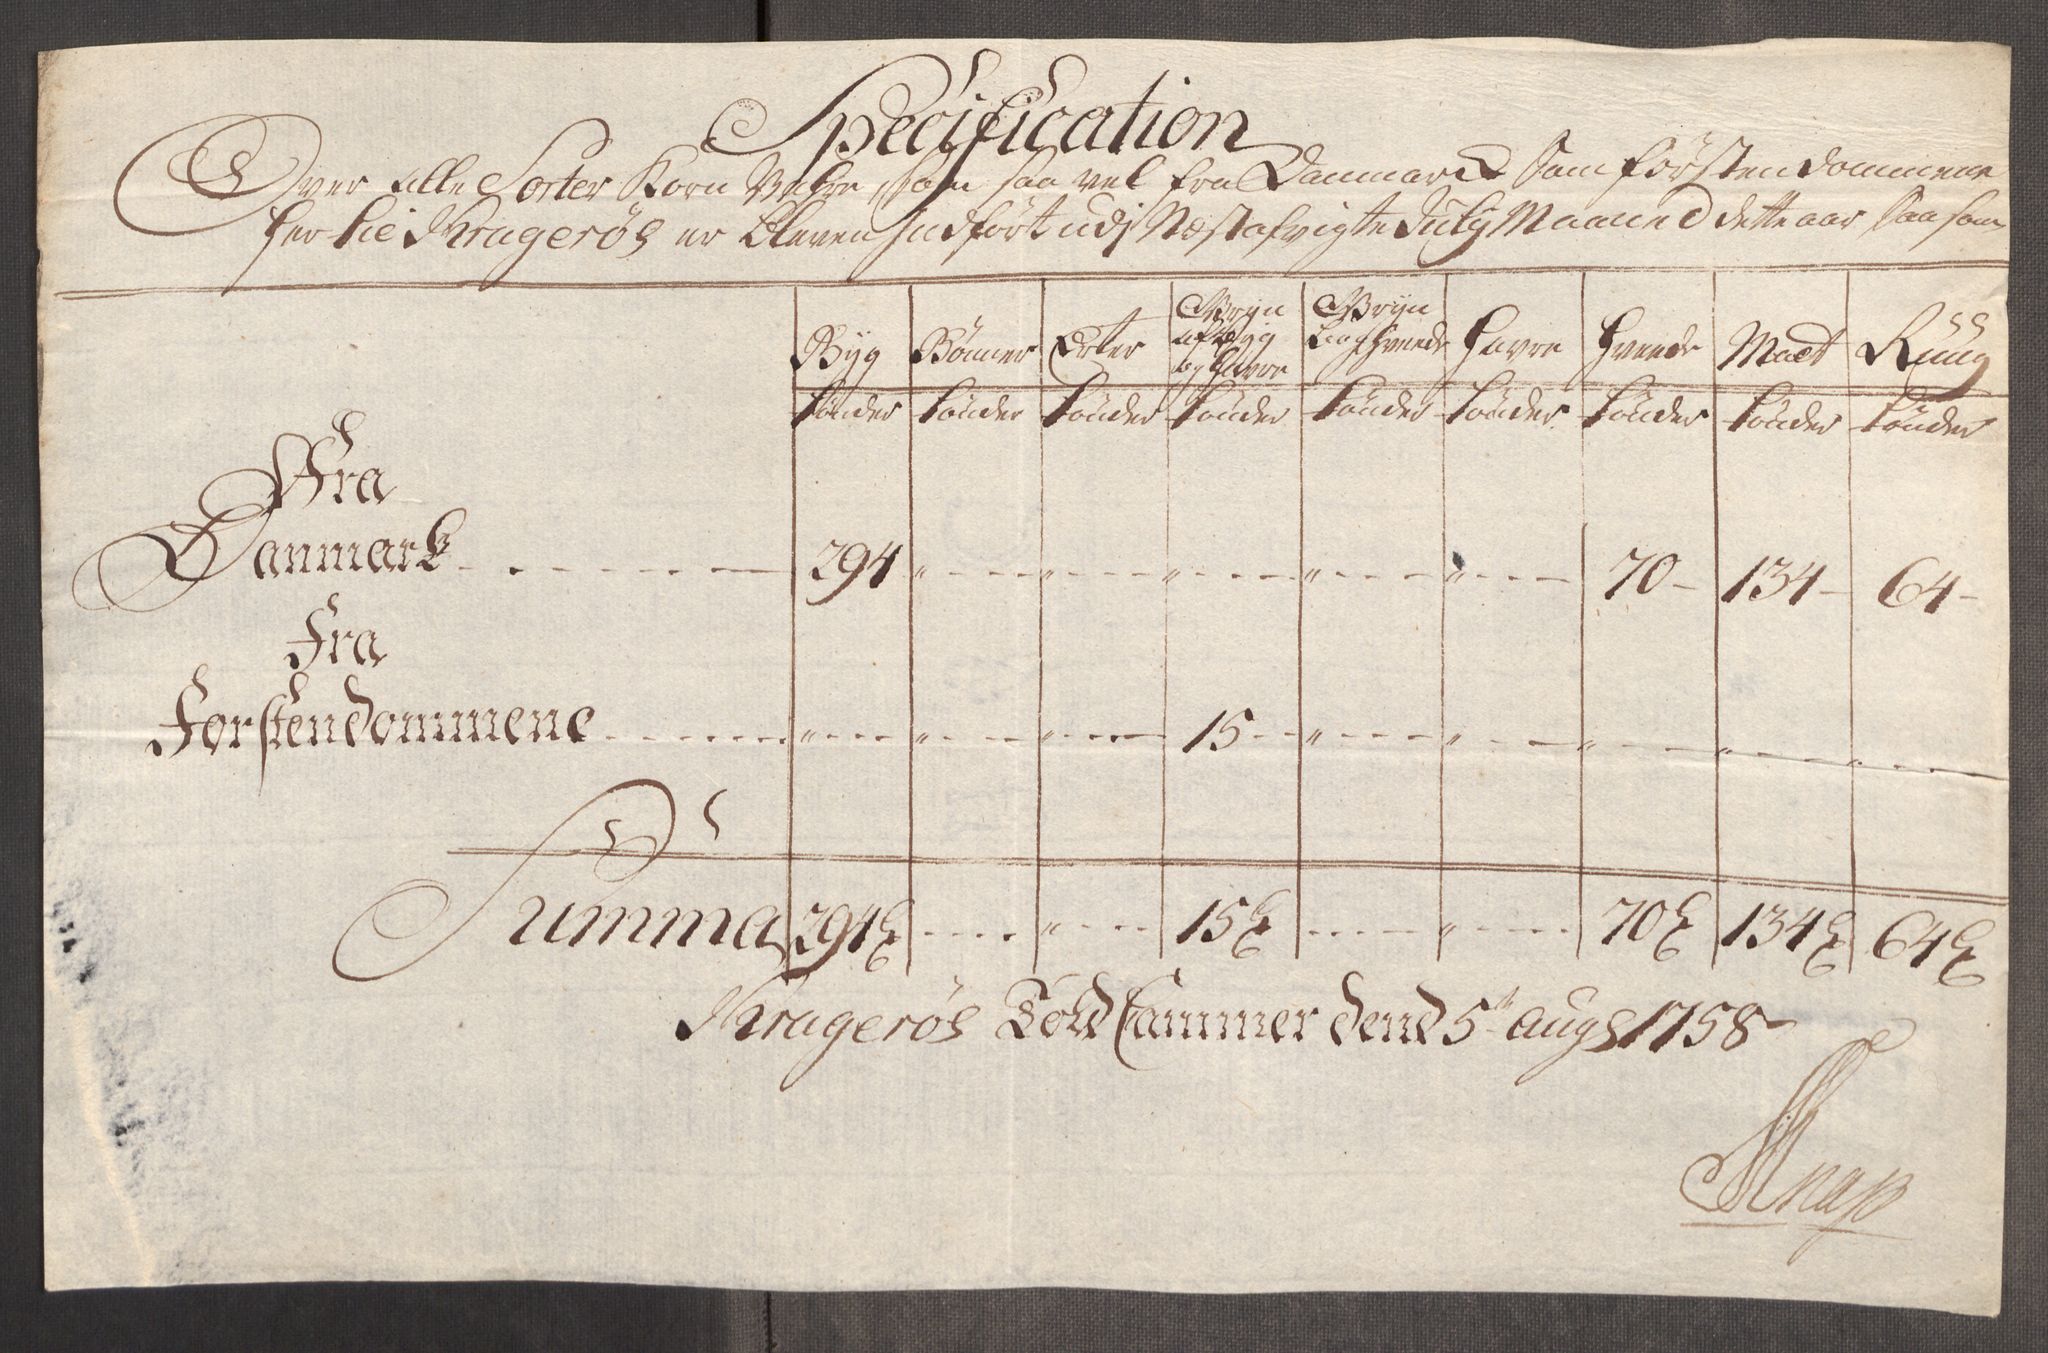 Specification
Over alle Sorter Korn Vahre, som saa vel fra Danmarck Som förstendommene
her tie Kragerøe er bleven Indfört udj Næstafvigte July Maaned dette aar Saasom
Byg Bönner Erter Gryn af Byg og Havre Gryn Boghveede Havre Hveede Malt Ruug
tönder tönder tönder tönder tönder tönder tönder tönder tönder
Fra
Danmark 294 70 134 64
Fra
Forstendommene 15
Summa 294 15 70 134 64
Kragerøe Told Cammer dend 5te augs 1758
Knap